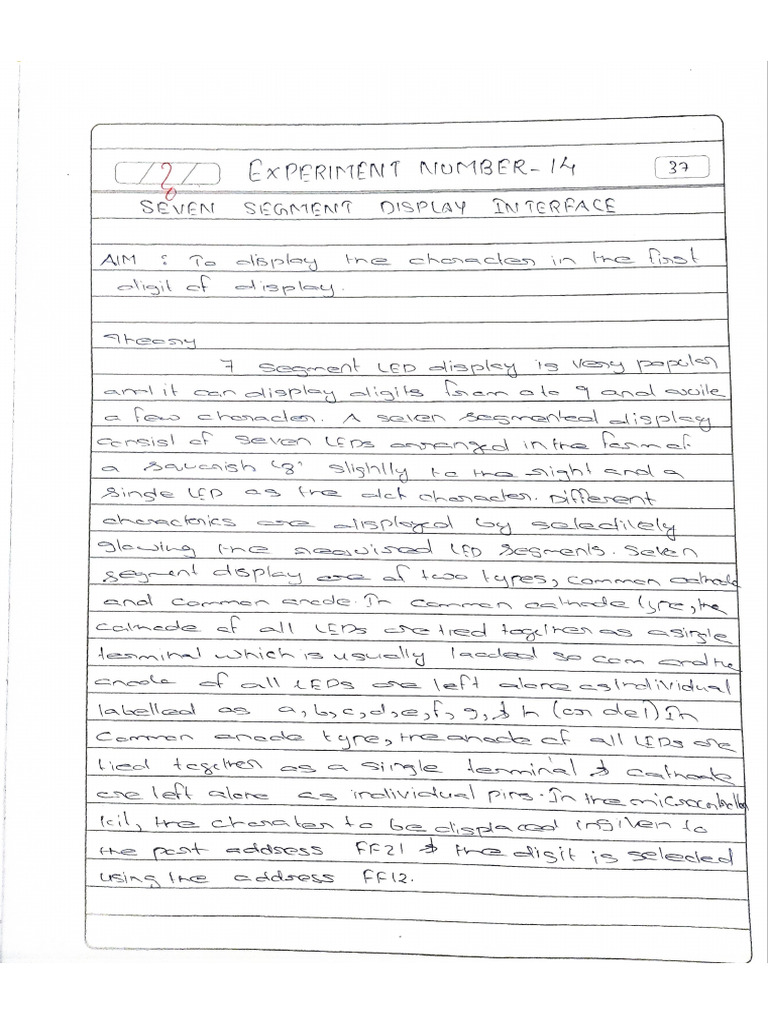 EXPERIMENT NUMBER-14 37
SEVEN SEGMENT DISPLAY INTERFACE
AIM : To display the character in the first
digit of display.
Theory
7 segment LED display is very popular
and it can display digits from 0 to 9 and
a few character. A seven segmented display
consist of seven LEDs arranged in the form of
a '8' slightly to the right and a
single LED as the dot character. Different
are displayed by selectively
glowing the required LED segments. Seven
segment display are of two types, common cathode
and common anode. In common cathode type, the
cathode of all LEDs are tied together as a single
terminal which is usually com and the
anode of all LEDs are left alone as individual
labelled as a, b, c, d, e, f, g, & h (or dot) In
common anode type, the anode of all LEDs are
tied together as a single terminal & cathode
are left alone as individual pins. In the microcontroller
kit, the to be displaced given to
the port address FF21 & the digit is selected
using the address FF12.